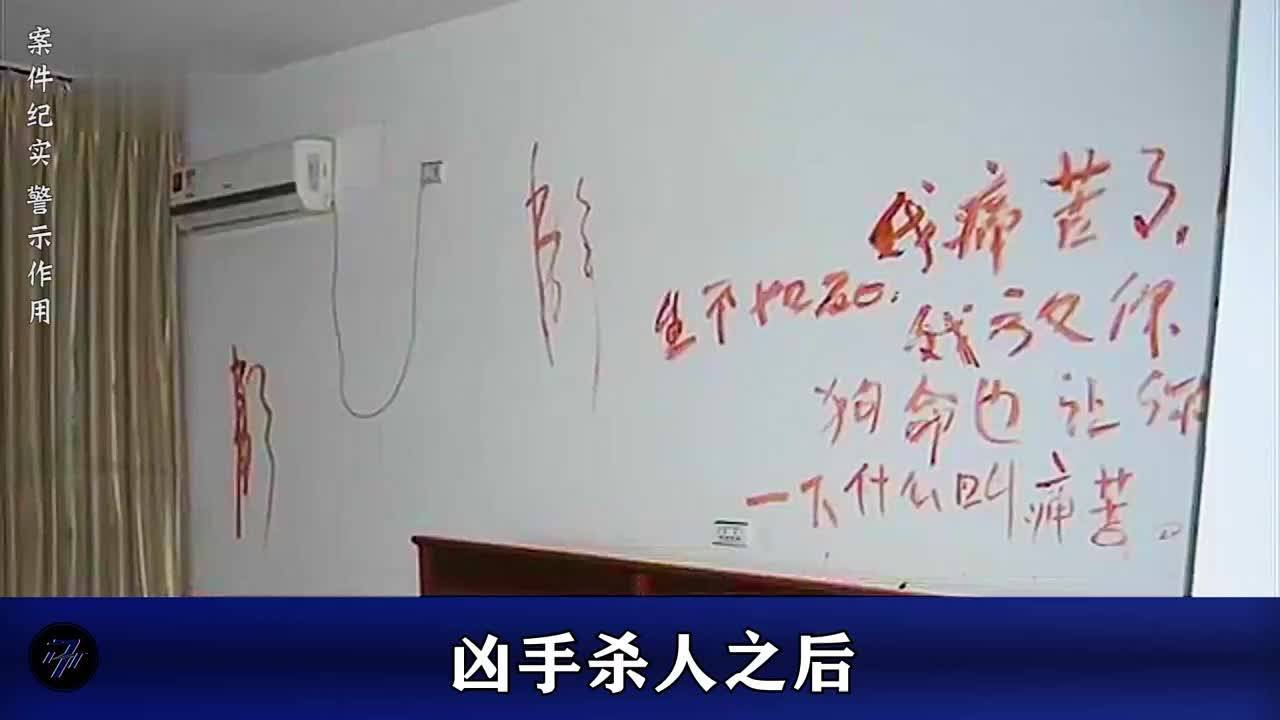 案件纪实 警示作用
我痛苦了,
生不如死.
我放你
狗命也让你
一下什么叫痛苦。
凶手杀人之后